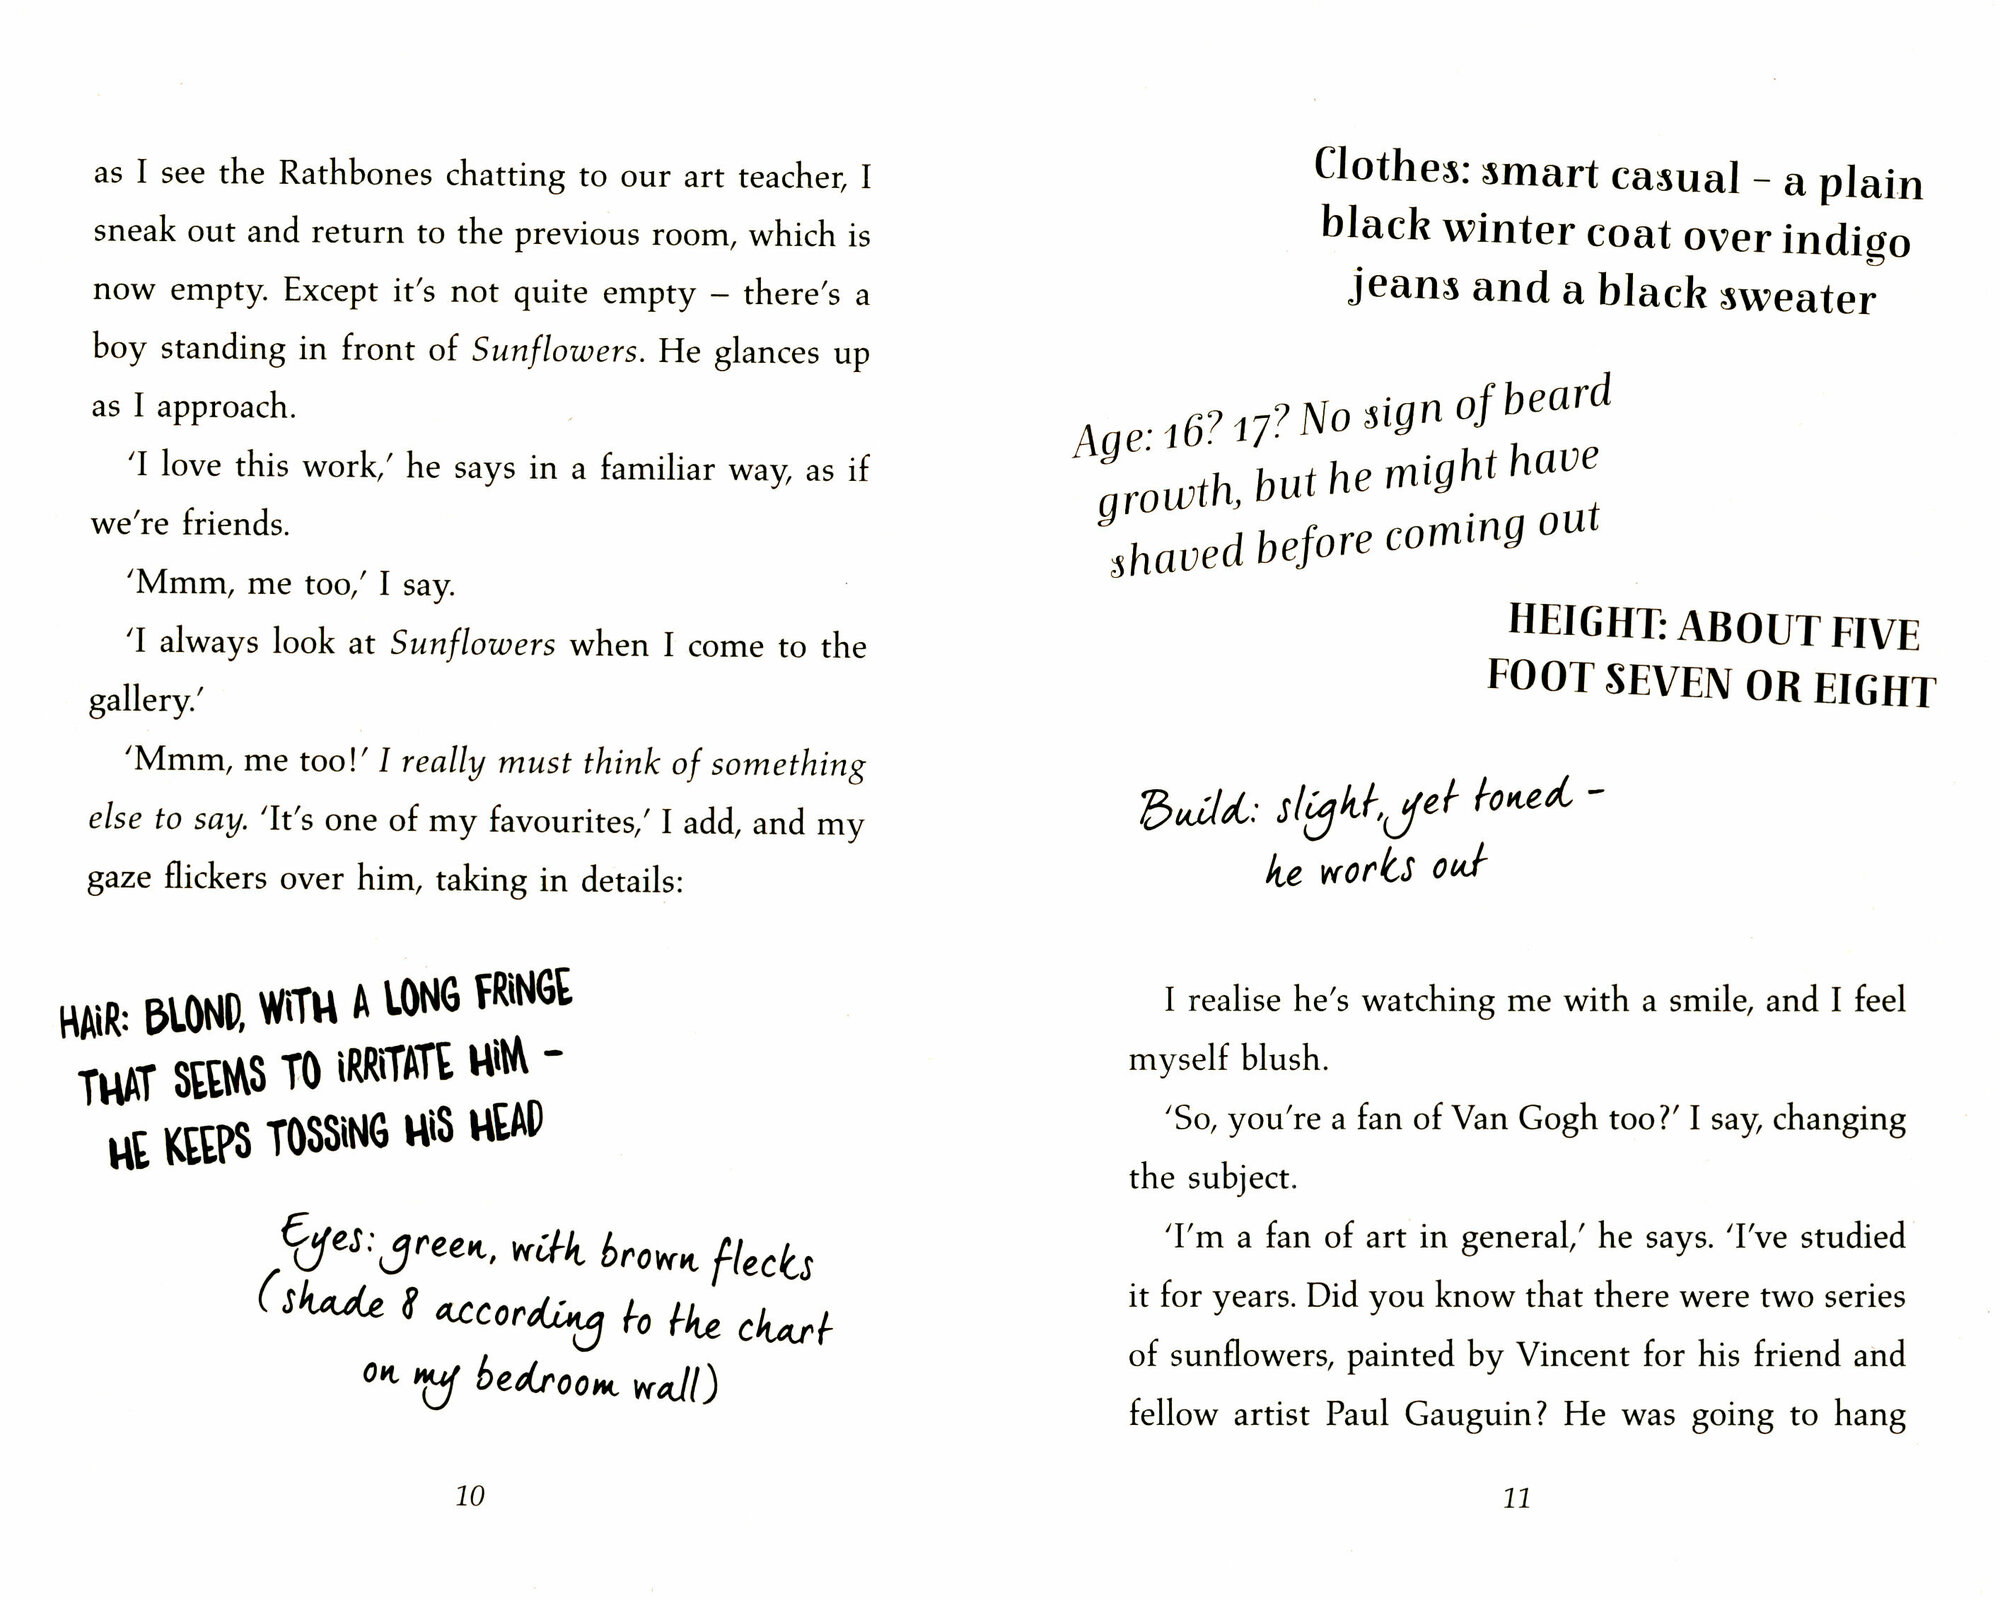 as I see the Rathbones chatting to our art teacher, I
sneak out and return to the previous room, which is
now empty. Except it's not quite empty – there's a
boy standing in front of Sunflowers. He glances up
as I approach.
‘I love this work,’ he says in a familiar way, as if
we're friends.
‘Mmm, me too,’ I say.
‘I always look at Sunflowers when I come to the
gallery.’
‘Mmm, me too!’ I really must think of something
else to say. ‘It's one of my favourites,’ I add, and my
gaze flickers over him, taking in details:
HAIR: BLOND, WITH A LONG FRINGE
THAT SEEMS TO IRRITATE HIM –
HE KEEPS TOSSING HIS HEAD
Eyes: green, with brown flecks
(shade 8 according to the chart
on my bedroom wall)
10
Clothes: smart casual – a plain
black winter coat over indigo
jeans and a black sweater
Age: 16? 17? No sign of beard
growth, but he might have
shaved before coming out
HEIGHT: ABOUT FIVE
FOOT SEVEN OR EIGHT
Build: slight, yet toned –
he works out
I realise he's watching me with a smile, and I feel
myself blush.
‘So, you're a fan of Van Gogh too?’ I say, changing
the subject.
‘I'm a fan of art in general,’ he says. ‘I've studied
it for years. Did you know that there were two series
of sunflowers, painted by Vincent for his friend and
fellow artist Paul Gauguin? He was going to hang
11